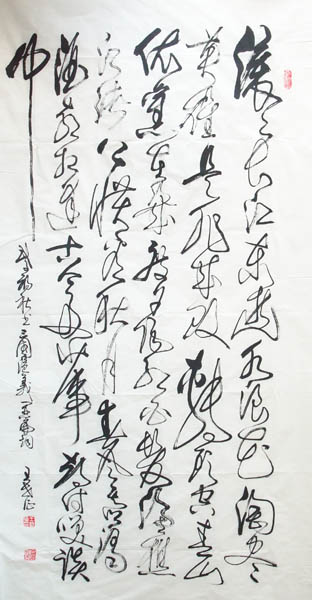 滚滚长江东逝水浪花淘尽
英雄是非成败转头空青山
依旧在几度夕阳红白发渔樵
江渚上惯看秋月春风一壶浊
酒喜相逢古今多少事都付笑谈
中
三国演义